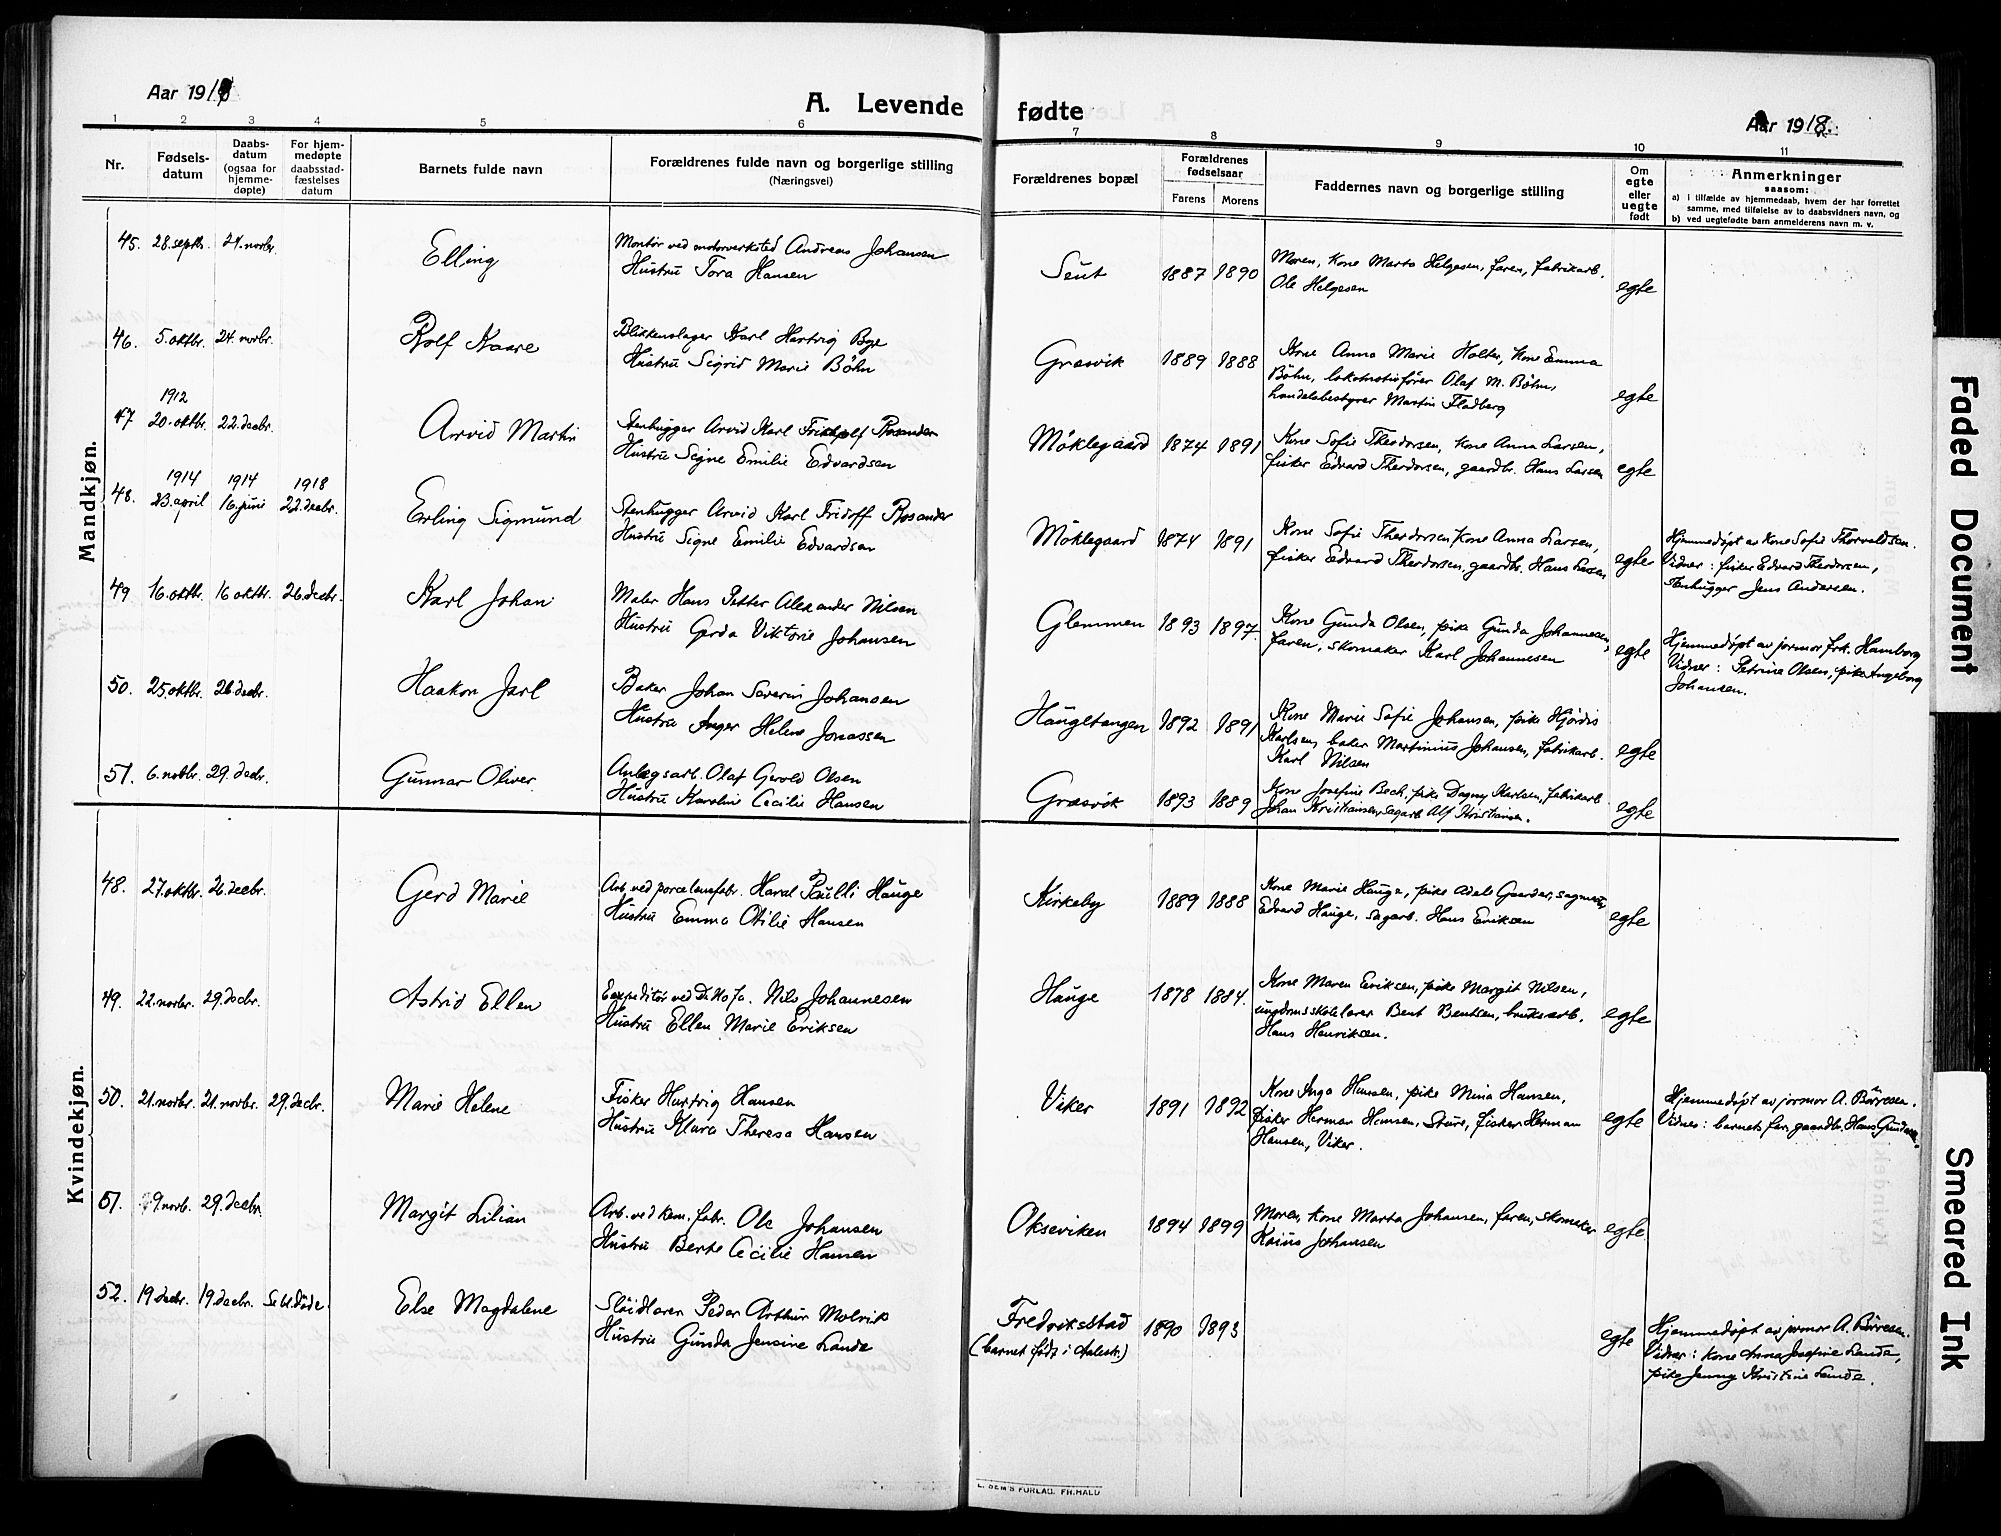 Aar 1918
A. Levende
1 2 3 4 5 6
Nr.
Fødsels-
datum
Daabs-
datum
(ogsaa for
hjemme-
døpte)
For hjem-
medøpte
daabsstad-
fæstelses
datum
Barnets fulde navn
Forældrenes fulde navn og borgerlige stilling
(Næringsvei)
Mandkjøn.
45. 28. septbr. 24. novbr. Elling
Montør ved motorverksted Andreas Johansen
Hustru Tora Hansen
46. 5. oktbr. 24. novbr. Rolf Kaare
Blikkenslager Karl Hartvig Bye
Hustru Sigrid Marie Bøhn
1912
47 20. oktbr. 22. decbr. Arvid Martin
Stenhugger Arvid Karl Fridolf Rosander
Hustru Signe Emilie Edvardsen
1914 1914 1918
48. 23. april 16. juni 22. decbr. Erling Sigmund
Stenhugger Arvid Karl Fridoff Rosander
Hustru Signe Emilie Edvardsen
49 16. oktbr. 16 oktbr. 26. decbr. Karl Johan
Maler Hans Petter Alexander Nilsen
Hustru Gerda Viktorie Johansen
50. 25. oktbr. 26 decbr. Haakon Jarl
Baker Johan Severin Johansen
Hustru Inger Helene Jonassen
51. 6. novbr. 29. decbr. Gunnar Oliver
Anlægsarb. Olaf Gerold Olsen
Hustru Karoline Cecilie Hansen
Kvindekjøn.
48. 27. oktbr. 26. decbr. Gerd Marie
Arb. ved porcelænsfabr. Haral Paulli Hauge
Hustru Emma Otilie Hansen
49. 22. novbr. 29. decbr. Astrid Ellen
Expeditør ved De No fa. Nils Johannesen
Hustru Ellen Marie Eriksen
50. 21. novbr. 21. novbr. 29. decbr. Marie Helene
Fisker Hartvig Hansen
Hustru Klara Theresa Hansen
51. 9. novb. 29. decbr. Margit Lilian
Arb. ved kem. fabr. Ole Johansen
Hustru Berte Cecilie Hansen
52. 19 decbr. 19. decbr. Se u. døde. Else Magdalene
Sløidlærer Peder Arthur Molvik
Hustru Gunda Jensine Lande
fødte
Aar 1918.
7 8 9 10 11
Forældrenes bopæl
Forældrenes
fødselsaar
Farens Morens
Faddernes navn og borgerlige stilling
Om
egte
eller
uegte
født
Anmerkninger
saasom:
a) i tilfælde av hjemmedaab, hvem der har forrettet
samme, med tilføielse av to daabsvidners navn, og
b) ved uegtefødte barn anmelderens navn m. v.
Seut 1887 1890
Moren, kone Marta Helgesen, faren, fabrikarb.
Ole Helgesen
egte
Græsvik 1889 1888
Kone Anna Marie Holter, kone Emma
Bøhn, lokomotivfører Olaf M. Bøhn,
handelsbestyrer Martin Fladberg
egte
Møklegaard 1874 1891
Kone Sofie Theodorsen, kone Anna Larsen,
fisker Edvard Theodorsen, gaardbr. Hans Larsen
egte
Møklegaard 1874 1891
Kone Sofie Theodorsen, kone Anna Larsen,
fisker Edvard Theodorsen, gaardbr. Hans Larsen
egte
Hjemmedøpt av kone Sofie Thorvaldsen.
Vidner: fisker Edvard Theodorsen,
stenhugger Jens Andersen.
Glemmen 1893 1897.
Kone Gunda Olsen, pike Gunda Johannesen,
faren, skomaker Karl Johannesen
egte
Hjemmedøpt av jormor frk. Hamborg
Vidner: Petrine Olsen, pike Angeborg
Johansen.
Haugltangen 1892 1891
Kone Marie Sofie Johansen, pike Hjørdis
Karlsen, baker Martinius Johansen, fabrikarb.
Karl Nilsen
egte
Græsvik 1893 1889
Kone Josefine Bech, pike Dagny Karlsen, fabrikarb.
Johan Kristiansen, sagarb. Alf Kristiansen.
egte
Kirkeby 1889 1888
Kone Marie Hauge, pike Adele Gaarder, sagmester
Edvard Hauge, sagarb. Hans Eriksen
egte
Hauge 1878 1884.
Kone Maren Eriksen, pike Margit Nilsen,
ungdomsskolelærer Bent Bentsen, bruksarb.
Hans Henriksen.
egte
Viker 1891 1892
Kone Inga Hansen, pike Mina Hansen,
fisker Herman Hansen, Sture, fisker Herman
Hansen, Viker.
egte
Hjemmedøpt av jormor A. Børresen.
Vidner: barnets far, gaardbr. Hans Gundersen.
Okseviken 1894 1899
Moren, kone Marta Johansen, faren, skomaker
Kaius Johansen
egte
Fredriksstad 1890 1893
(barnet født i Aalestr.)
egte
Hjemmedøpt av jormor A. Børresen.
Vidner: kone Anna Josefine Lande,
pike Jenny Kristine Lande.
E. SEM'S FORLAG. FR.HALD
Faded Document
Smeared Ink